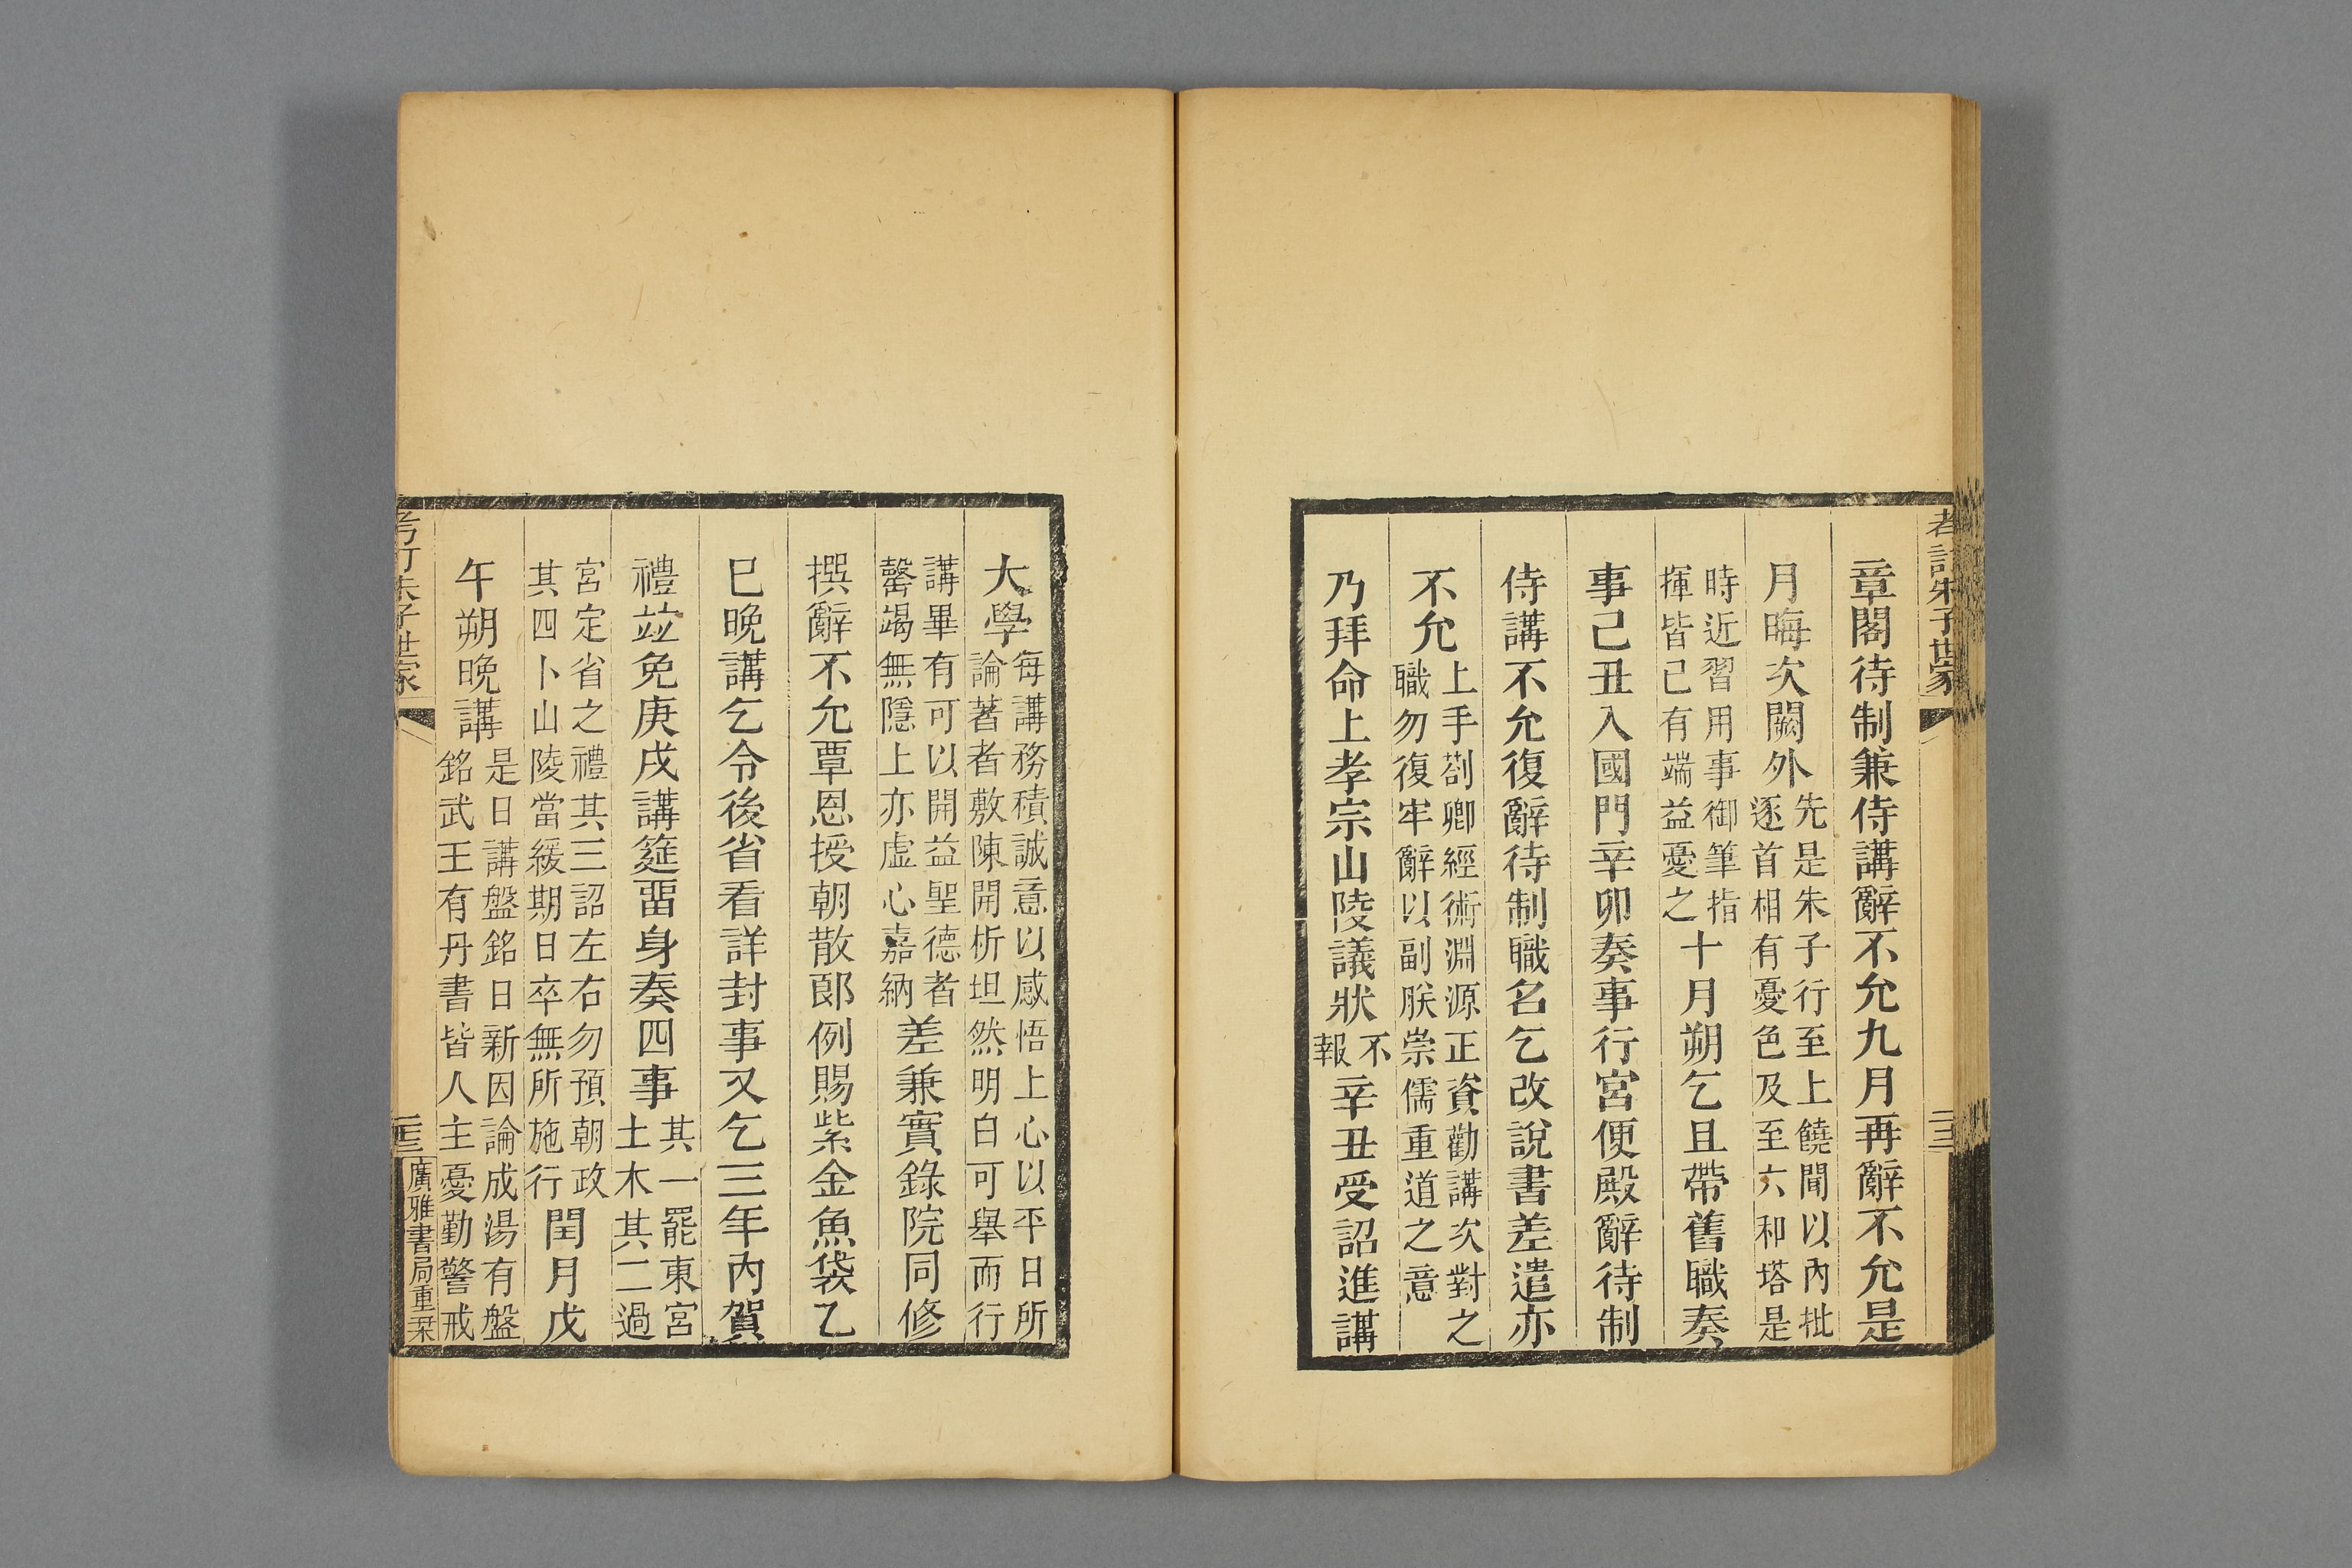 考訂朱子世家
章閣待制兼侍講辭不允九月再辭不允是
月晦次闕外先是朱子行至上饒聞以內批逐首相有憂色及至六和塔是
時近習用事御筆指揮皆已有端益憂之十月朔乞且帶舊職奏
事己丑入國門辛卯奏事行宮便殿辭待制
侍講不允復辭待制職名乞改說書差遣亦
不允上手劄卿經術淵源正資勸講次對之職勿復牢辭以副朕崇儒重道之意
乃拜命上孝宗山陵議狀不報辛丑受詔進講
大學每講務積誠意以感悟上心以平日所論著者敷陳開析坦然明白可舉而行
講畢有可以開益聖德者罄竭無隱上亦虛心嘉納差兼實錄院同修
撰辭不允覃恩授朝散郎例賜紫金魚袋乙
巳晚講乞令後省看詳封事又乞三年內賀
禮竝免庚戌講筵畱身奏四事其一罷東宮土木其二過
宮定省之禮其三詔左右勿預朝政其四卜山陵當緩期日卒無所施行閏月戊
午朔晚講是日講盤銘日新因論成湯有盤銘武王有丹書皆人主憂勤警戒
考訂朱子世家
廣雅書局重栞